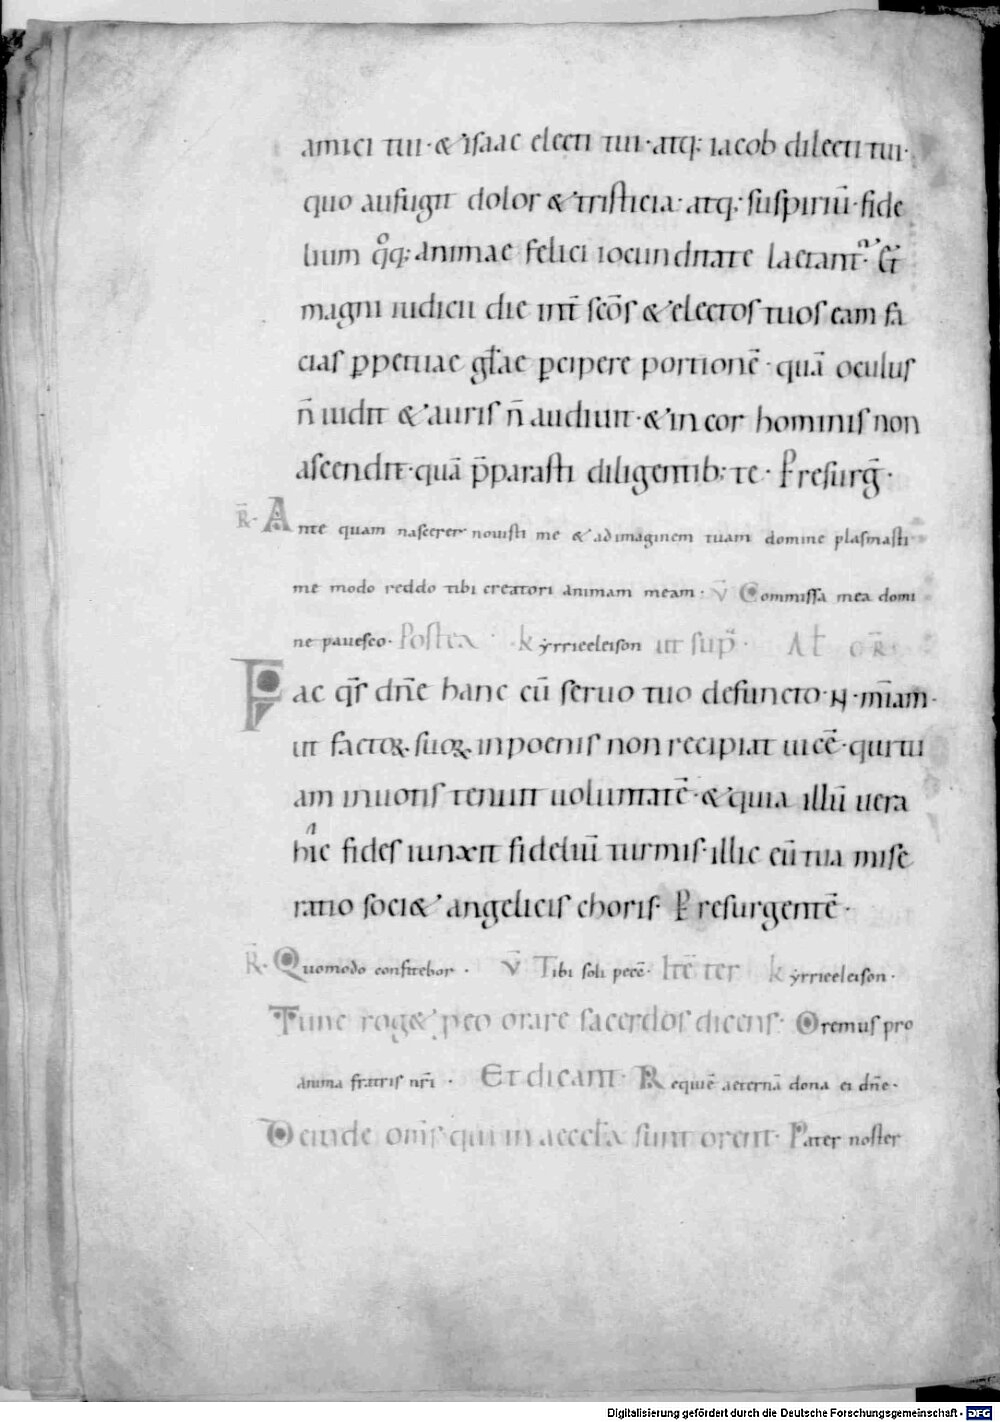 amici tui· & isaac electi tui· atq; iacob dilecti tui·
quo aufugit dolor & tristicia· atq; suspiriū· fide
lium qͦq; animae felici iocunditate laetant᷑· Et
magni iudicii die int̄ scōs & electos tuos eam fa
cias ꝑpetuae gl̄ae ꝑcipere portionē· quā oculus
n̄ uidit & auris n̄ audiuit· & in cor hominis non
ascendit· quā p̄parasti diligentib; te· P resurḡ·
R̄· Ante quam nascerer nouisti me & ad imaginem tuam domine plasmasti
me modo reddo tibi creatori animam meam· v̄ Commissa mea domi
ne pauesco· Postea· kyrrieeleison ut sup̄· At oR̄·
Fac qs̄ dn̄e hanc cū seruo tuo defuncto· N· miam̄·
ut factoꝝ suoꝝ in poenis non recipiat uicē· qui tu
am in uotis tenuit uoluntatē· & quia illū uera
hic fides iunxit fideliū turmis· illic eū tua mise
ratio soci& angelicis choris· P resurgentē·
R̄· Quomodo confitebor· v̄ Tibi soli pecc̄· Itē ter kyrrieeleison·
Tunc rog& p eo orare sacerdos dicens· Oremus pro
anima fratris nr̄i· Et dicant· Requiē aeternā dona ei dn̄e·
Deinde om̄s qui in aeccl̄a sunt orent· Pater noster
Digitalisierung gefördert durch die Deutsche Forschungsgemeinschaft - DFG